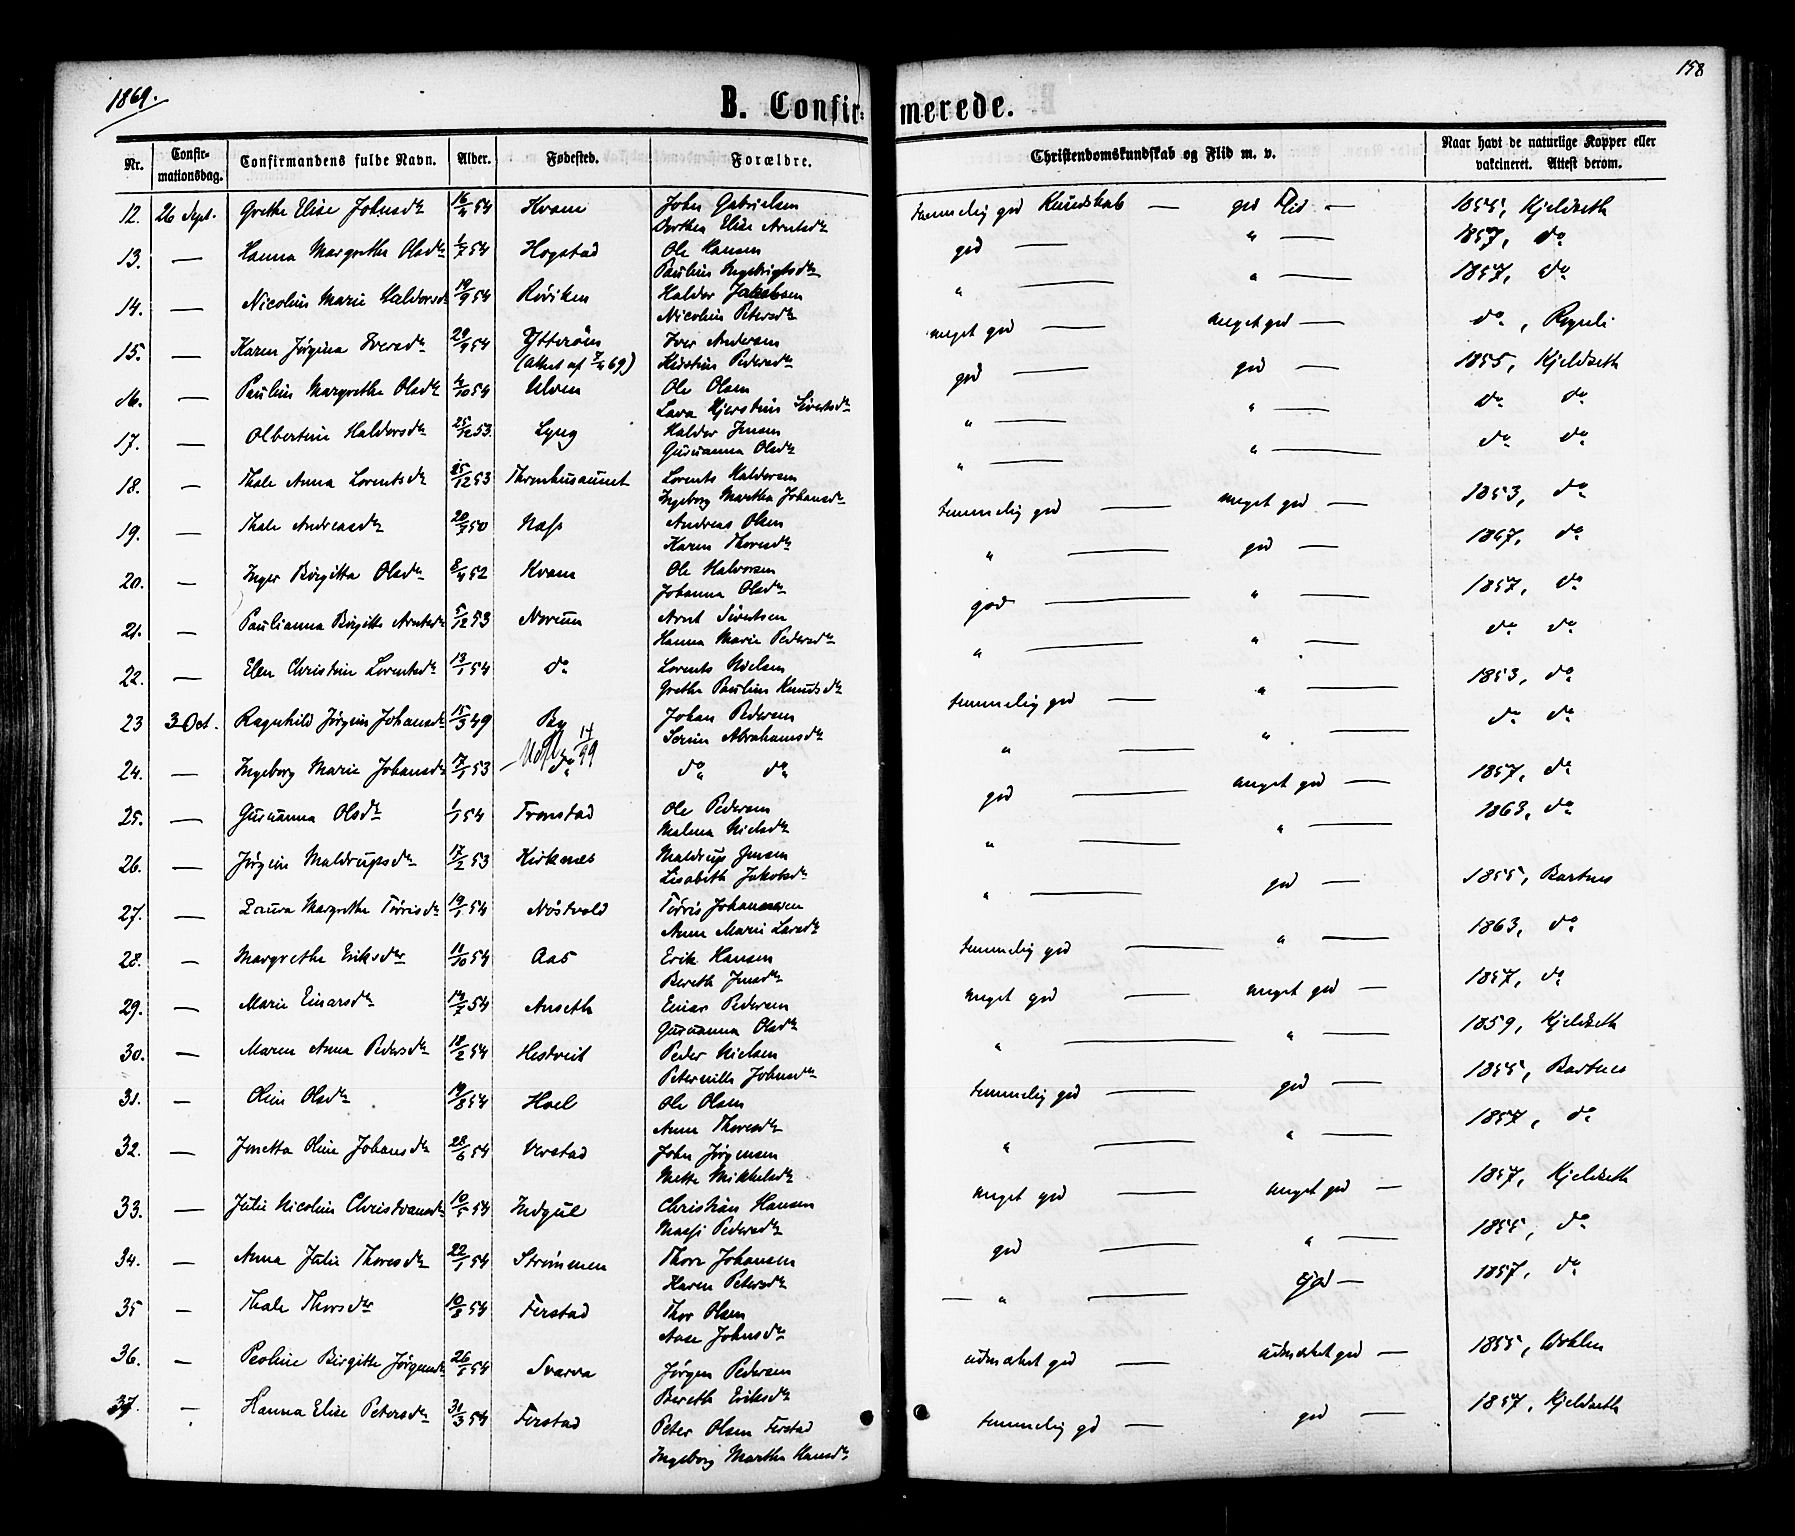 1869.
158
B. Confirmerede.
Nr. Confirmationsdag. Confirmandens fulde Navn. Alder. Fødested. Forældre. Christendomskundskab og Flid m. v. Naar havt de naturlige Kopper eller vakcineret. Attest derom.
12. 26 Sept. Grethe Elise Johnsdr 16/4 54 Kvam John Gabrielsen temmelig god Kundskab — god Flid — 1855, Kjeldseth
Dorthea Elise Arntsdr
13. — Hanna Margrethe Olsdr 1/7 54 Hogstad Ole Hansen god — " — 1857, do
Pauline Ingebrigtsdr
14. — Nicoline Marie Haldorsdr 19/9 54 Røviken Haldor Jakobsen " — " — 1857, do
Nicoline Petersdr
15. — Karen Jørgina Iversdr 29/9 54 Ytterøen Iver Andersen meget god — meget god — do,
(Attest af 7/4 69) Kirstine Pedersdr
16. — Pauline Margrethe Olsdr 4/10 54 Ulven Ole Olsen god — god — 1855, Kjeldseth
Lava Kjerstine Sivertsdr
17. — Olbertine Haldorsdr 25/12 53. Lyng Haldor Jensen " — " — do do
Gurianna Olsdr
18. — Thale Anna Lorentsdr 25/12 53 Lorents Haldorsen " — " — do do
Ingeborg Maretha Johansdr
19. — Thale Andreasdr 20/7 50 Næss Andreas Olsen temmelig god — meget god — 1853, do
Karen Thoresdr
20. — Inger Birgitta Olsdr 8/4 52 Kvam Ole Halvorsen " — god — 1867, do
Johanna Olsdr
21. — Paulianna Birgitte Arntsdr 5/12 53 Norum Arnt Sivertsen god — " — 1857, do
Hanna Marie Pedersdr
22. — Elen Christine Lorentsdr 13/1 54 do Lorents Nielsen " — " — do do
Grethe Pauline Knudsdr
23 3 Oct. Ragnhild Jørgine Johansdr 15/3 49 By Johan Pedersen temmelig god — " — 1853, do
Serine Abrahamsdr
24. — Ingeborg Marie Johansdr 17/1 53 do do do " — " — do do
25. — Gurianna Olsdr 1/1 54 Tronstad Ole Pedersen god — meget god — 1857, do
Malena Nielsdr
26. — Jørgine Maldrupsdr 17/2 53 Kirknes Maldrup Jensen " — " — 1863, do
Lisabeth Jakobsdr
27. — Laura Margrethe Tørrisdr 19/1 54 Nøstvold Tørris Johannesen " — god — 1855, Bartnes
Anne Marie Larsdr
28. — Margrethe Eriksdr 11/10 54 Aas Erik Hansen temmelig god — " — 1863, do
Bereth Jensdr
29. — Marie Einarsdr 14/7 54 Auseth Einar Pedersen meget god — meget god — 1857, do
Gurianna Olsdr
30. — Maren Anna Pedersdr 18/2 54 Hestveit Peder Nielsen " — " — 1859, Kjeldseth
Peternille Johnsdr
31. — Oline Olsdr 19/8 54 Hoel Ole Olsen temmelig god — god — 1855, Bartnes
Anne Thoresdr
32. — Jonetta Oline Johansdr 28/6 54 Verstad John Jørgensen " — " — 1857, do
Mette Mikkelsdr
33. — Julie Nicoline Christiansdr 10/5 54 Indgul Christian Hansen meget god — meget god — 1857, Kjeldseth
Massi Pedersdr
34. — Anna Julie Thoresdr 22/1 54 Strømmen Thore Johansen god — " — 1855, do
Karen Petersdr
35 — Thale Thorsdr 10/8 54 Ferstad Thor Olsen — " — god — 1857, do
Aase Johnsdr
36. — Peoline Birgitte Jørgensdr 26/1 54 Svarva Jørgen Pedersen udmærket god — udmærket god — 1855,
Bereth Eriksdr
37. — Hanna Elise Petersdr 31/3 54 Ferstad Peter Olsen Ferstad temmelig gd — god — 1857, Kjeldseth
Ingeborg Martha Hansdr